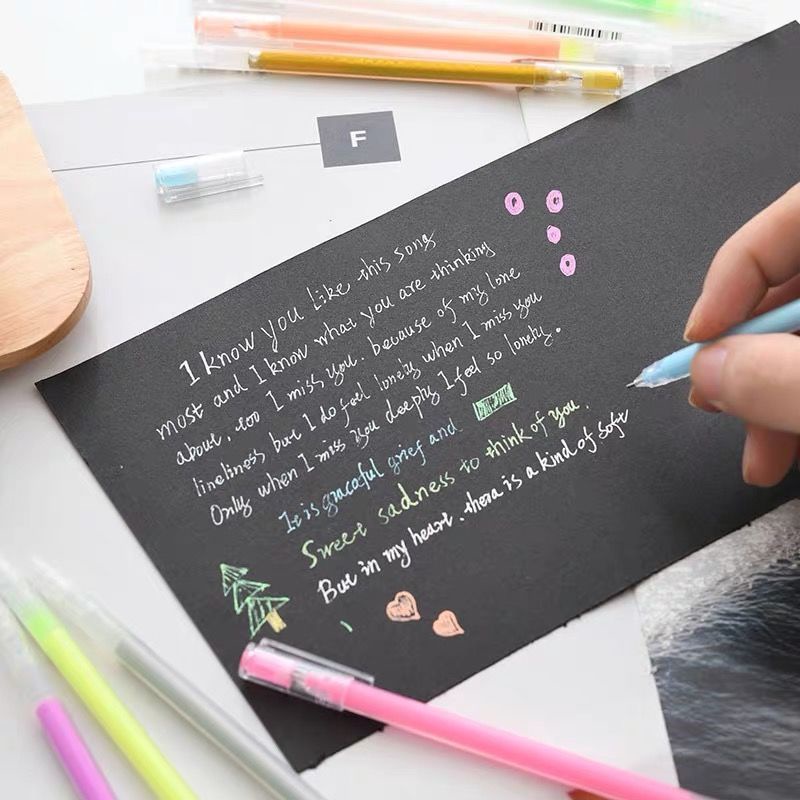 F
I know you like this song
most and I know what you are thinking
about, too I miss you. because of my lone
lineliness but I do feel lonely when I miss you
Only when I miss you deeply I feel so lonely.
It is graceful grief and
Sweet sadness to think of you.
But in my heart. there is a kind of soft